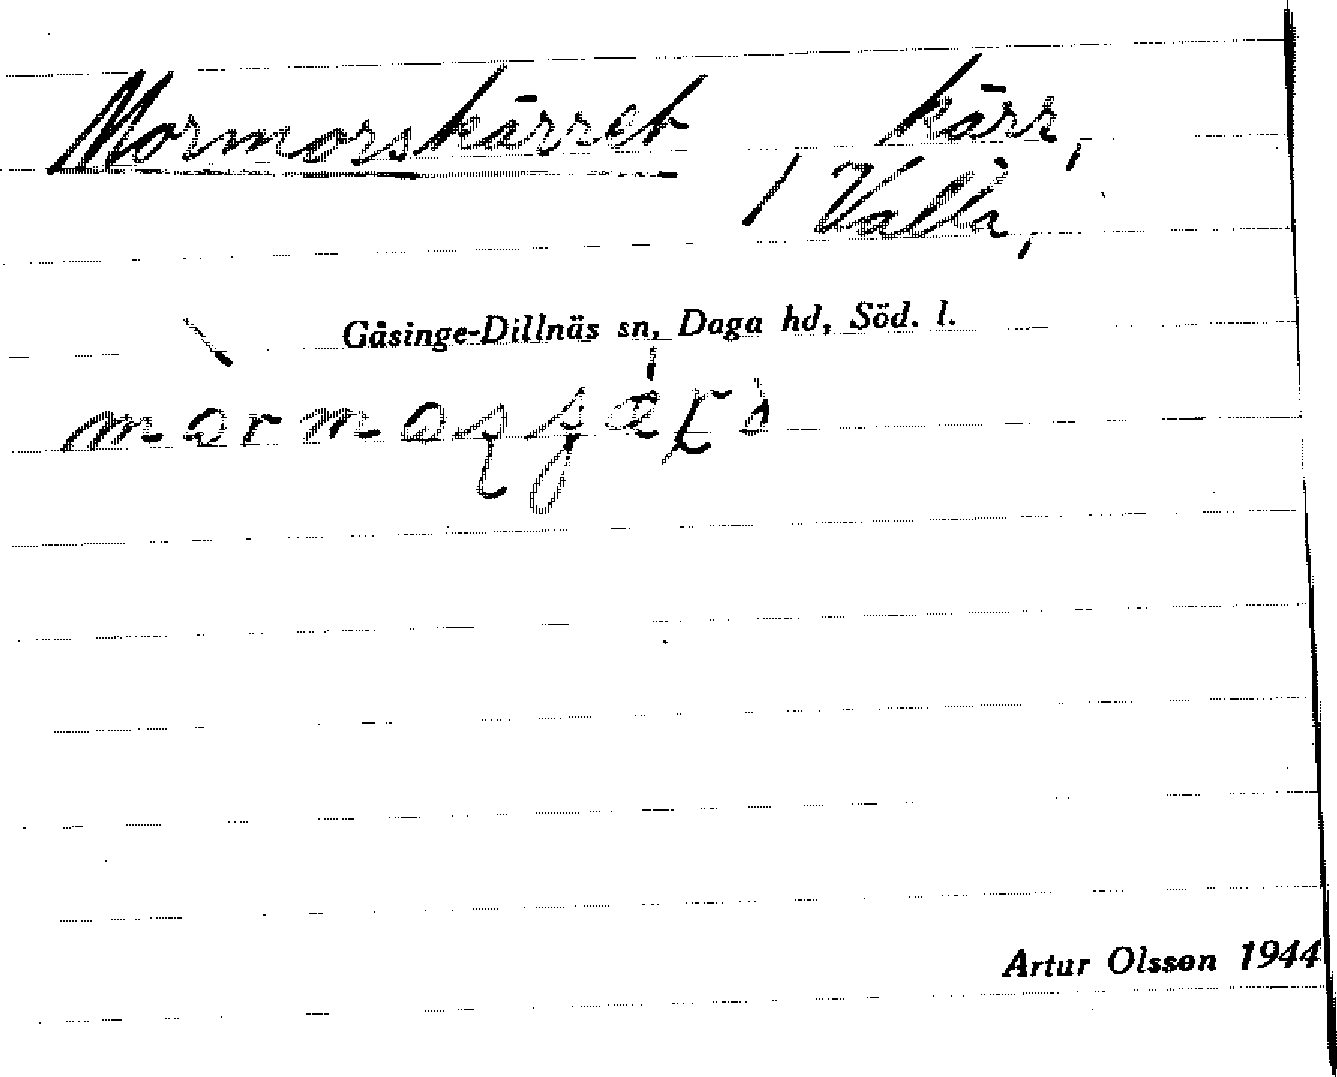 Mormorskärret kärr,
/ Valla,
Gåsinge-Dillnäs sn, Daga hd, Söd. l.
Artur Olsson 1944